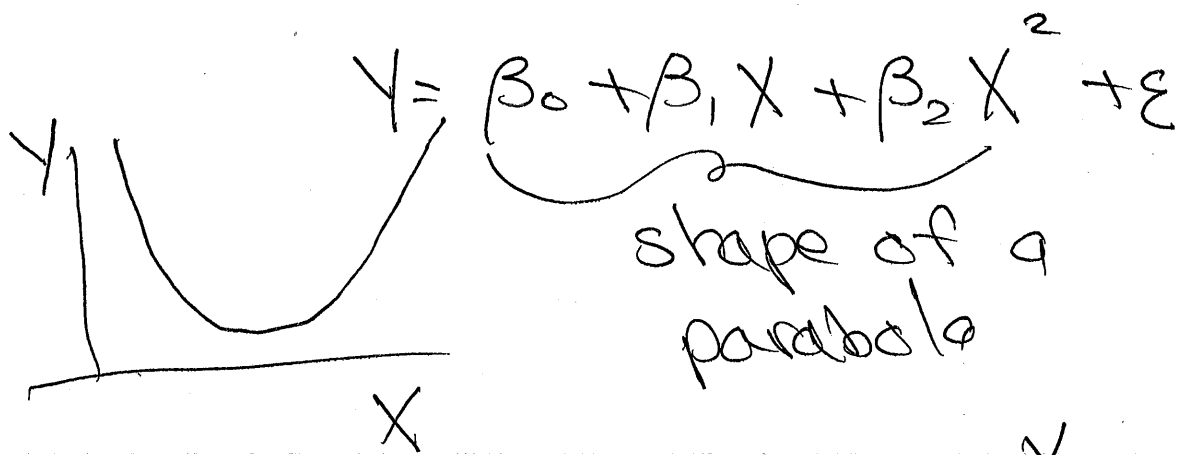 Y = β₀ + β₁ X + β₂ X² + ε
Y
shape of a
parabola
X
Y